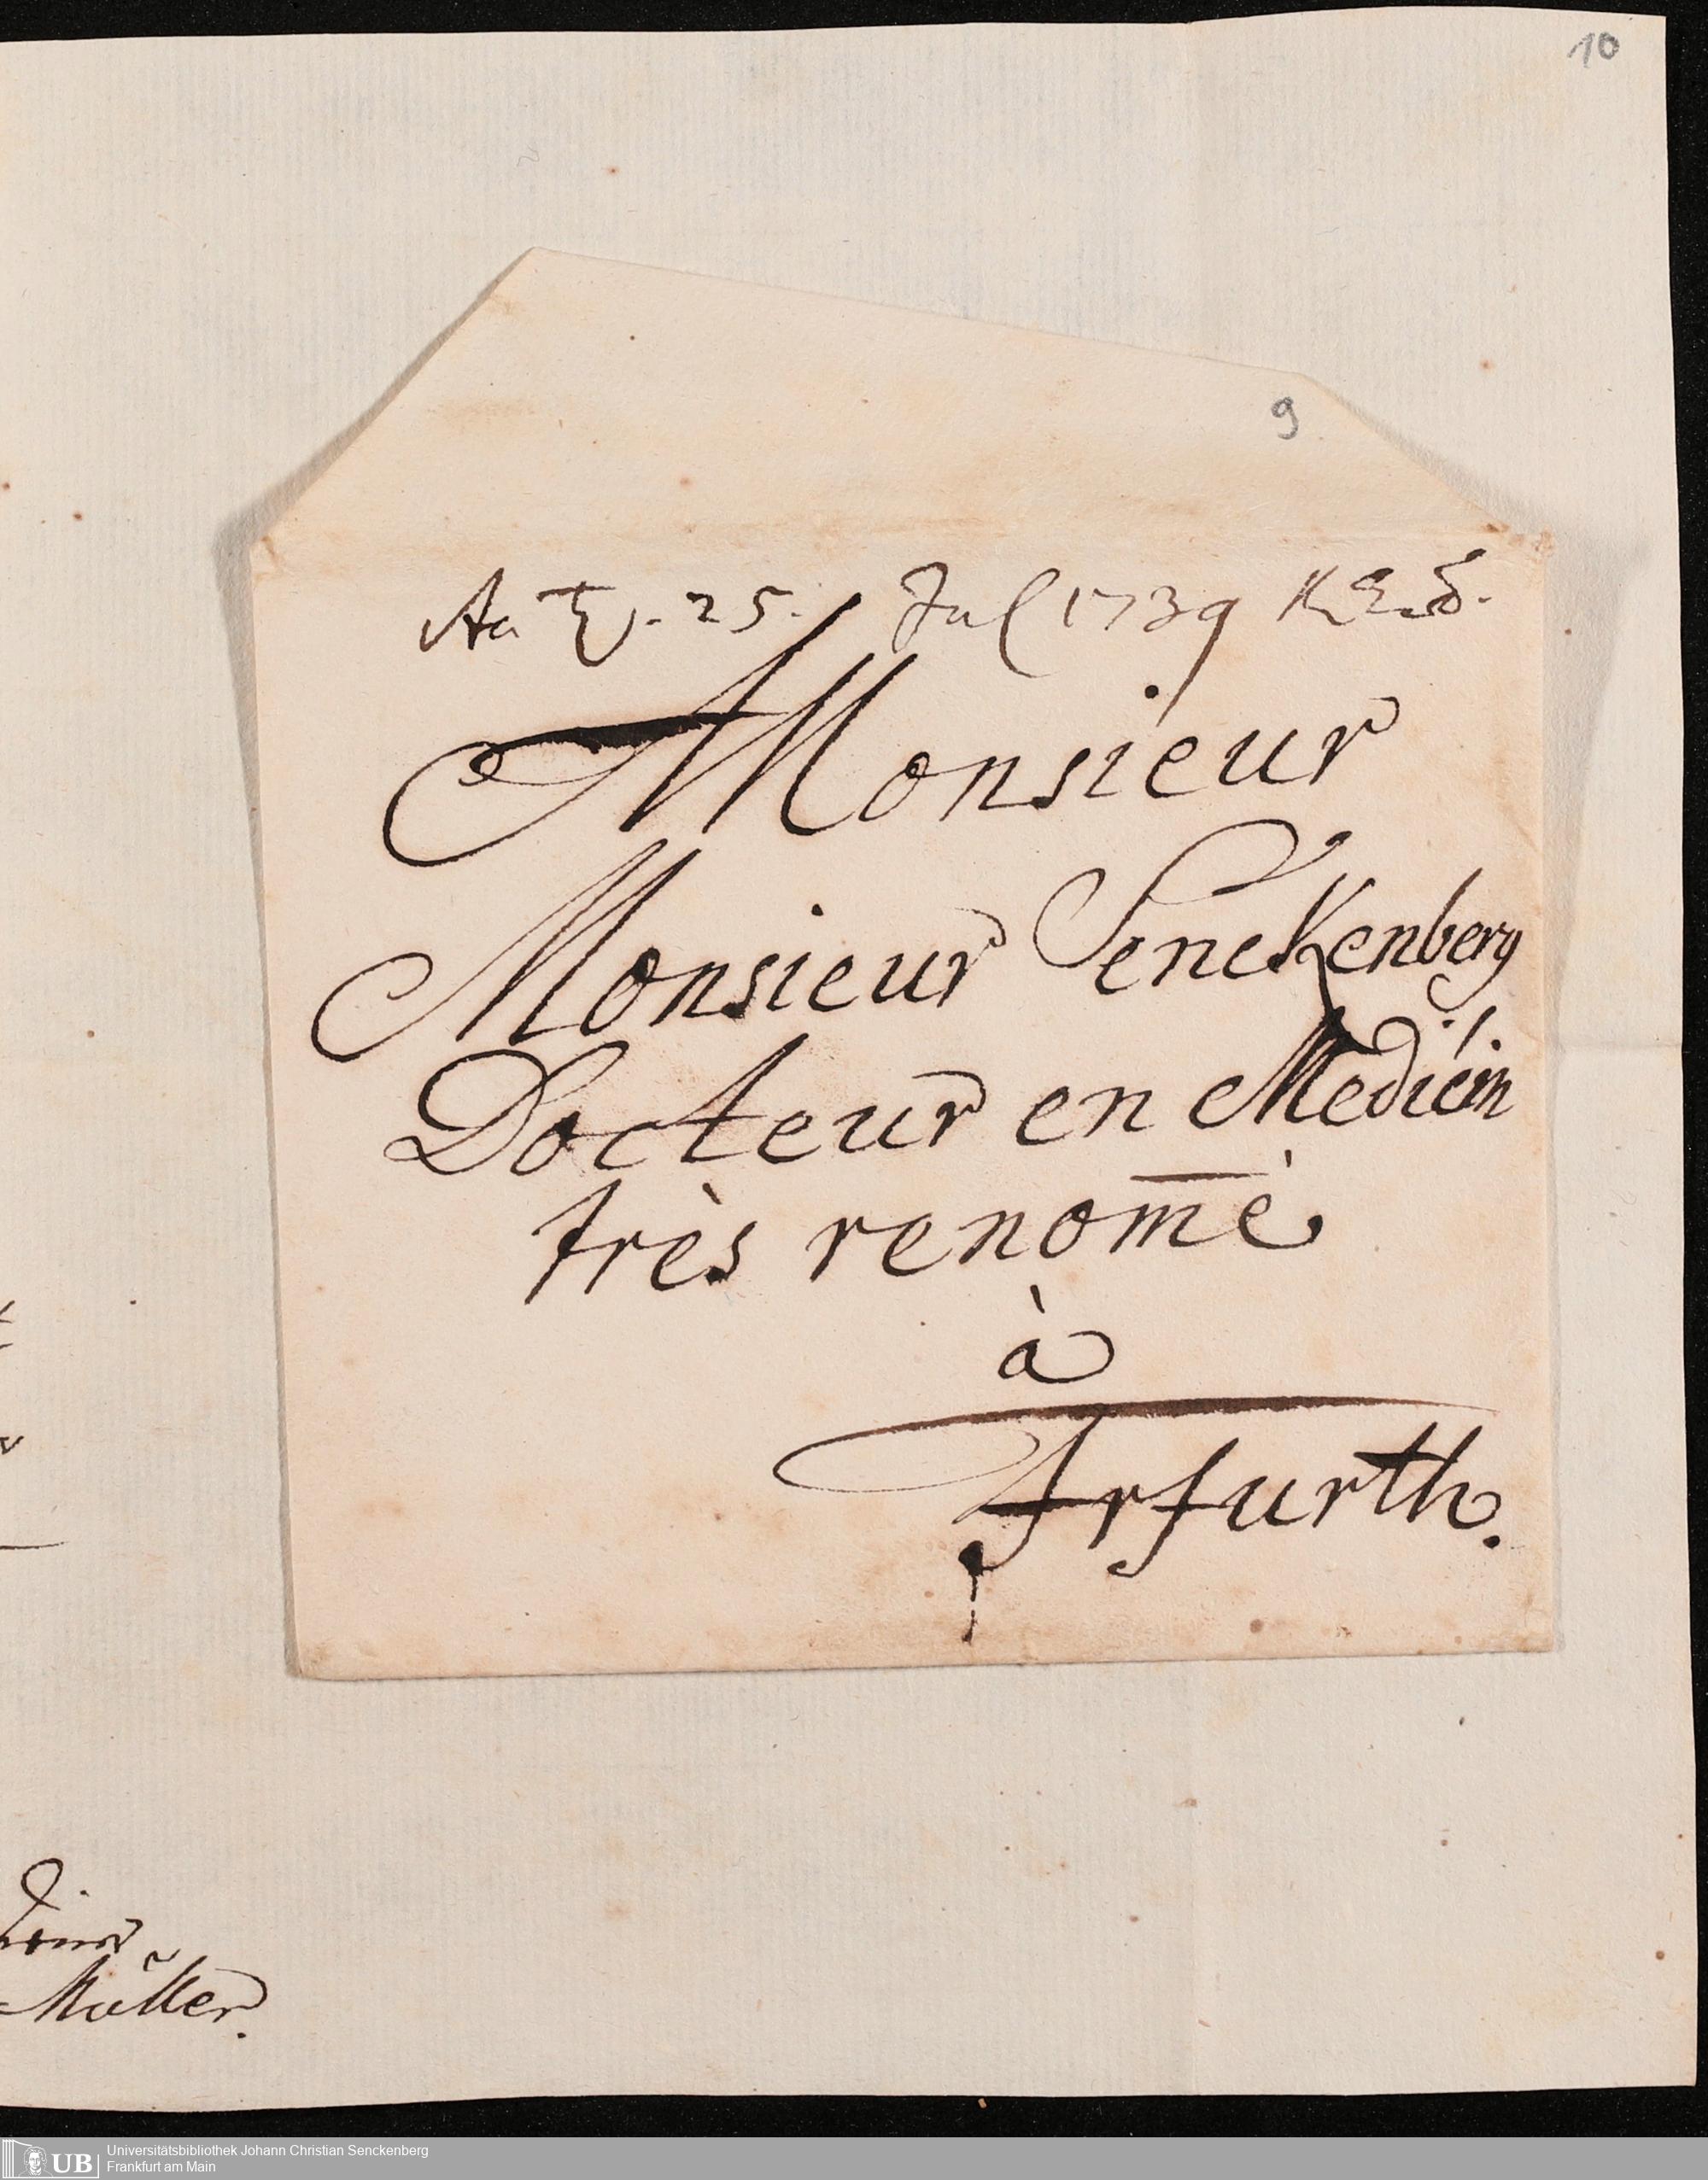 10
9
25. Jul 1739
Monsieur
Monsieur Senckenberg
Docteur en Medicin
très renom̅è
à
Erfurth.
Müller.
UB Universitätsbibliothek Johann Christian Senckenberg
Frankfurt am Main